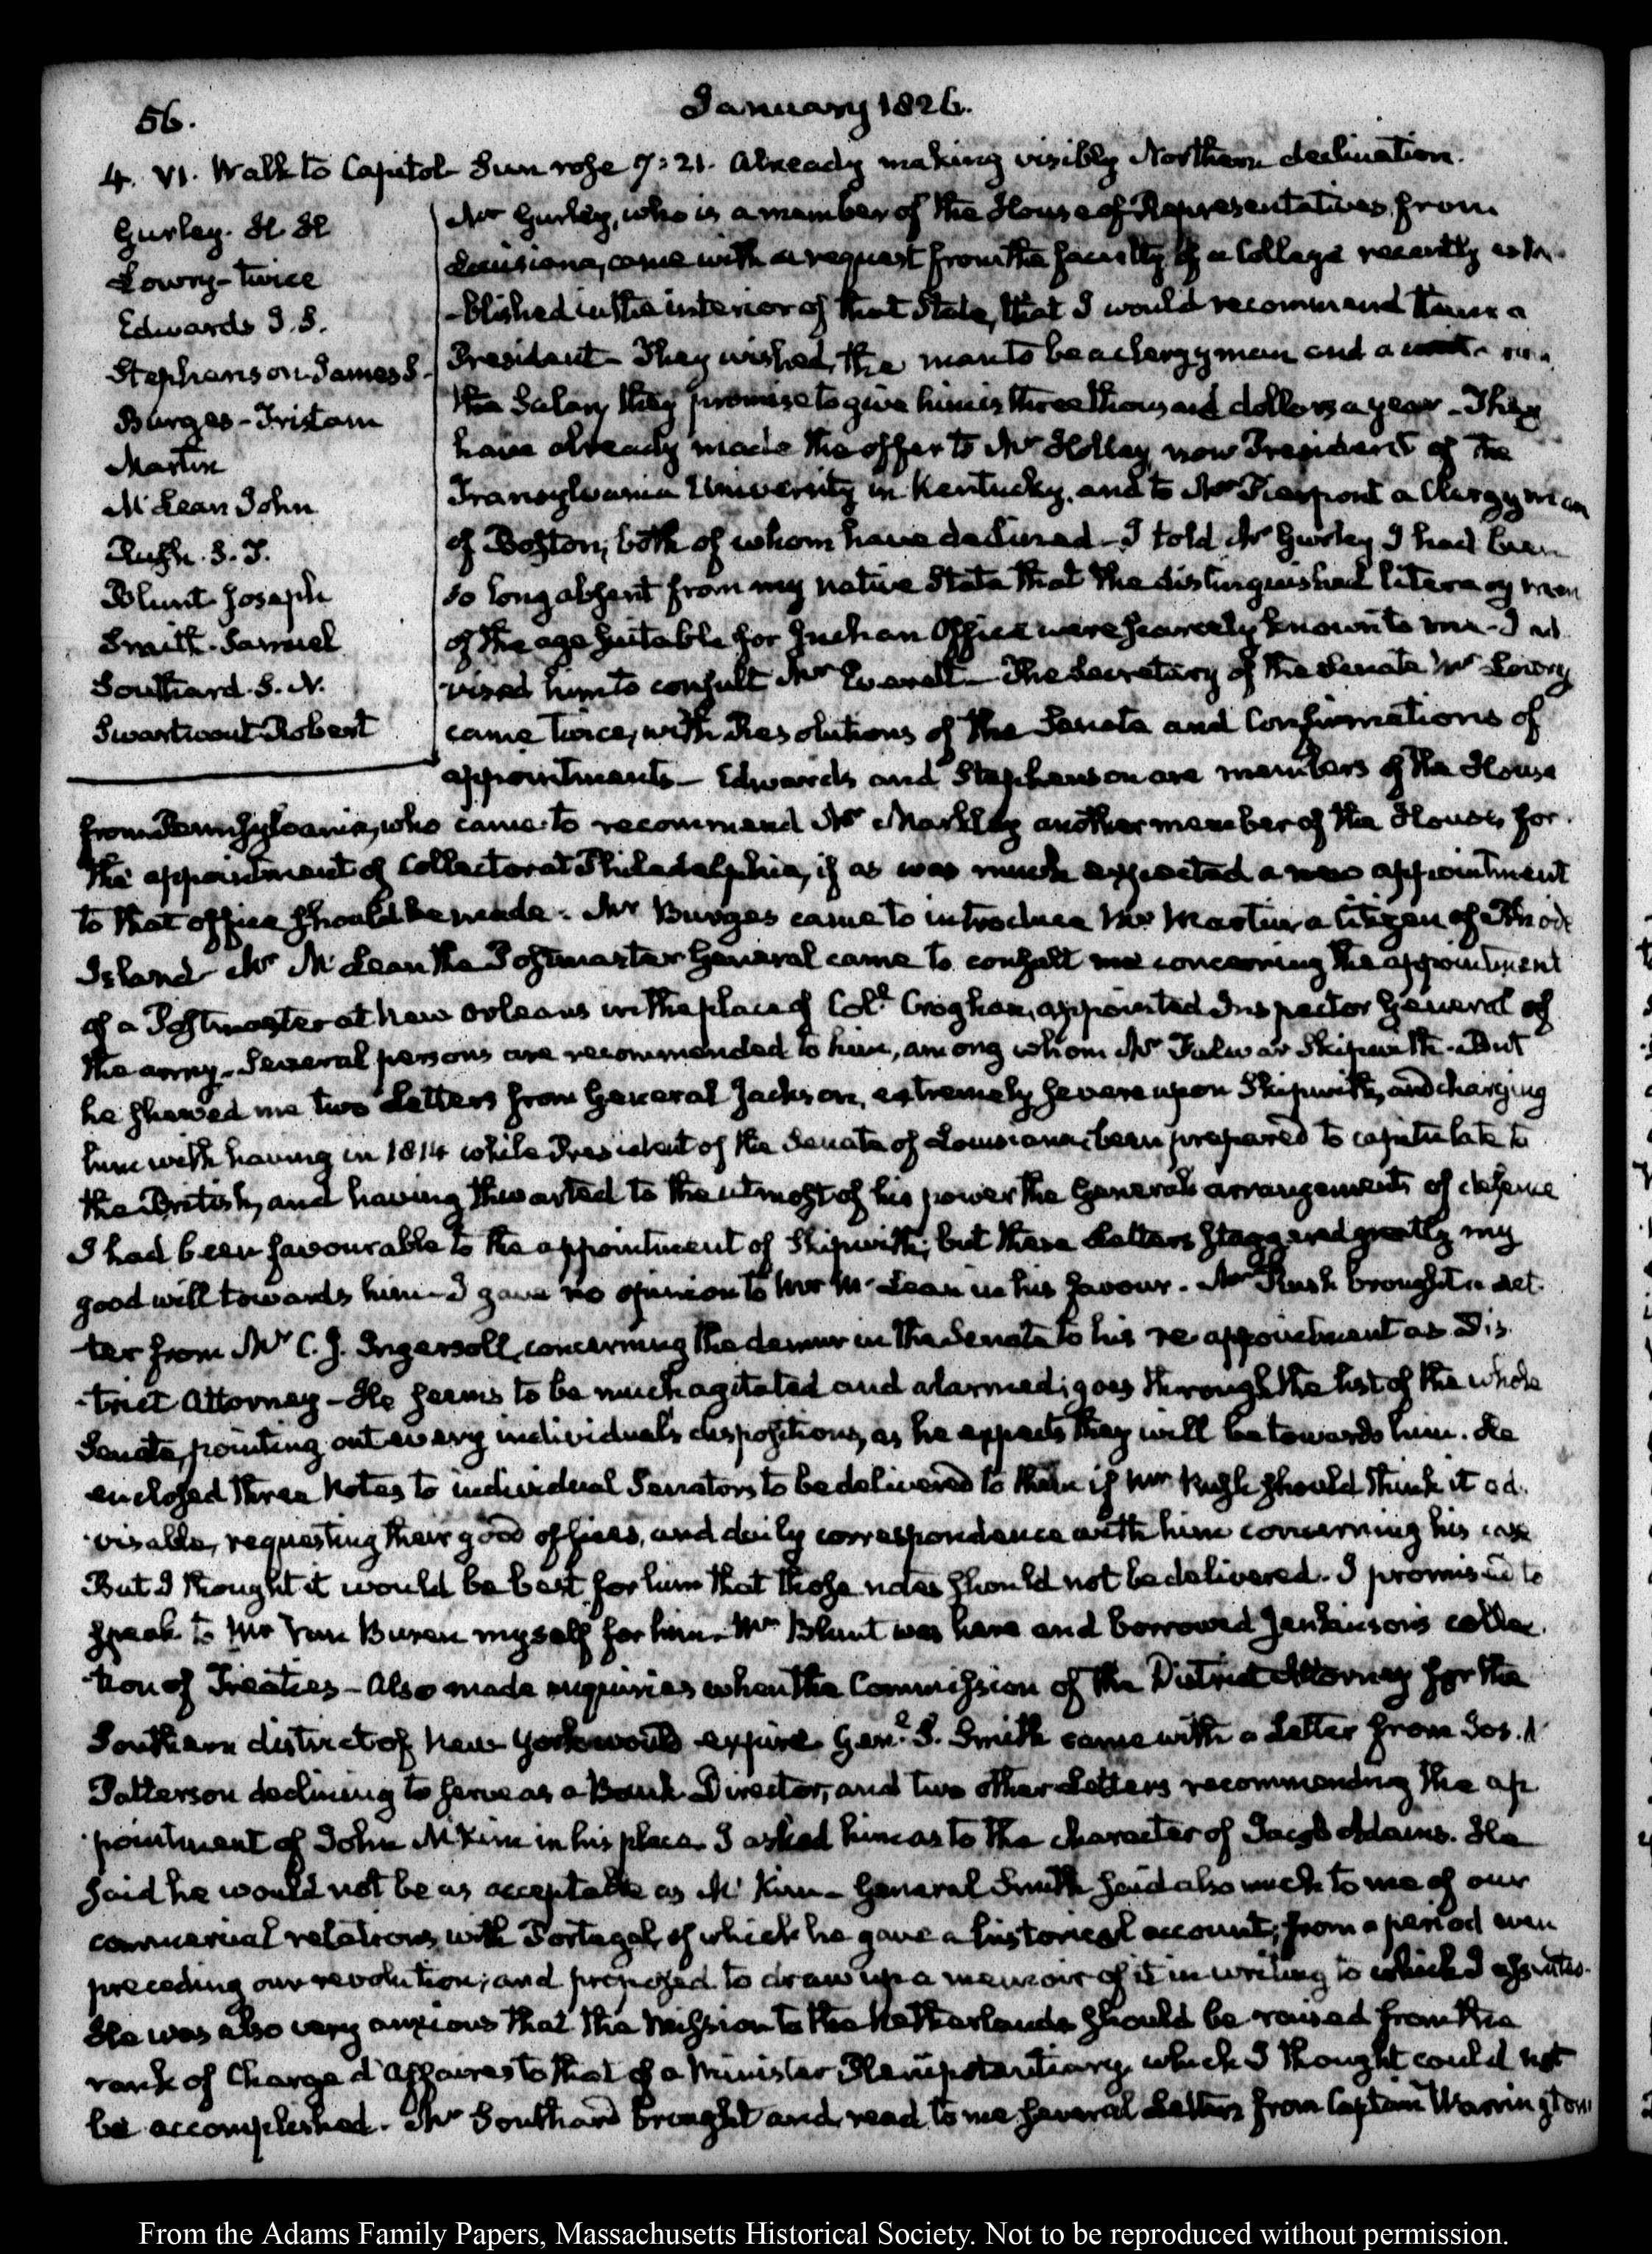 56.
January 1826.
4. VI. Walk to Capitol Sun rose 7:21. Already making visibly Northern declination.
Gurley. H H
Lowry - twice
Edwards J. S.
Stephenson James S.
Burges - Tristam
Martin
McLean John
Rush. S. T.
Blunt Joseph
Smith. Samuel
Southard. S. N.
Swartwout Robert
Mr Gurley, who is a member of the House of Representatives from
Louisiana, came with a request from the faculty of a College recently esta-
-blished in the interior of that State, that I would recommend them a
President - They wished the man to be a clergyman and a
the Salary they promise to give him is three thousand dollars a year - They
have already made the offer to Mr Holley now President of the
Transylvania University in Kentucky, and to Mr Pierpont a Clergyman
of Boston; both of whom have declined - I told Mr Gurley I had been
so long absent from my native State that the distinguished literary men
of the age suitable for such an Office were scarcely known to me - I ad
vised him to consult Mr Everett - The Secretary of the Senate Mr Lowry
came twice, with Resolutions of the Senate and Confirmations of
appointments - Edwards and Stephenson are members of the House
from Pennsylvania, who came to recommend Mr Markley another member of the House, for
the appointment of Collector at Philadelphia, if as was much expected a new appointment
to that office should be made. Mr Burges came to introduce Mr Martin a Citizen of Rhode
Island - Mr McLean the Postmaster General came to consult me concerning the appointment
of a Postmaster at New Orleans in the place of Coll Croghan, appointed Inspector General of
the army - Several persons are recommended to him, among whom Mr Fulwar Skipwith. But
he shewed me two Letters from General Jackson, extremely severe upon Skipwith, and charging
him with having in 1814 while President of the Senate of Louisiana been prepared to capitulate to
the British, and having thwarted to the utmost of his power the General's arrangements of defence
I had been favourable to the appointment of Skipwith; but these Letters staggered greatly my
good will towards him - I gave no opinion to Mr McLean in his favour. Mr Rush brought a Let
-ter from Mr C. J. Ingersoll, concerning the demur in the Senate to his re appointment as Dis
-trict Attorney - He seems to be much agitated and alarmed; goes through the list of the whole
Senate, pointing out every individual's dispositions, as he expects they will be towards him. He
enclosed three Notes to individual Senators to be delivered to them if Mr Rush should think it ad
-visable, requesting their good offices, and daily correspondence with him concerning his case
But I thought it would be best for him that those notes should not be delivered. I promised to
speak to Mr Van Buren myself for him - Mr Blunt was here and borrowed Jenkinson's collec
-tion of Treaties - Also made enquiries when the Commission of the District Attorney for the
Southern district of New York would expire. Genl S. Smith came with a Letter from Jos. W
Patterson declining to serve as a Bank Director, and two other Letters recommending the ap
-pointment of John McKim in his place. I asked him as to the character of Jacob Adams. He
said he would not be as acceptable as McKim - General Smith said also much to me of our
commercial relations with Portugal, of which he gave a historical account, from a period even
preceding our revolution; and proposed to draw up a memoir of it in writing to which I assented.
He was also very anxious that the Mission to the Netherlands should be raised from the
rank of Charge d'Affaires to that of a Minister Plenipotentiary, which I thought could not
be accomplished. Mr Southard brought and read to me several Letters from Captain Warrington
From the Adams Family Papers, Massachusetts Historical Society. Not to be reproduced without permission.